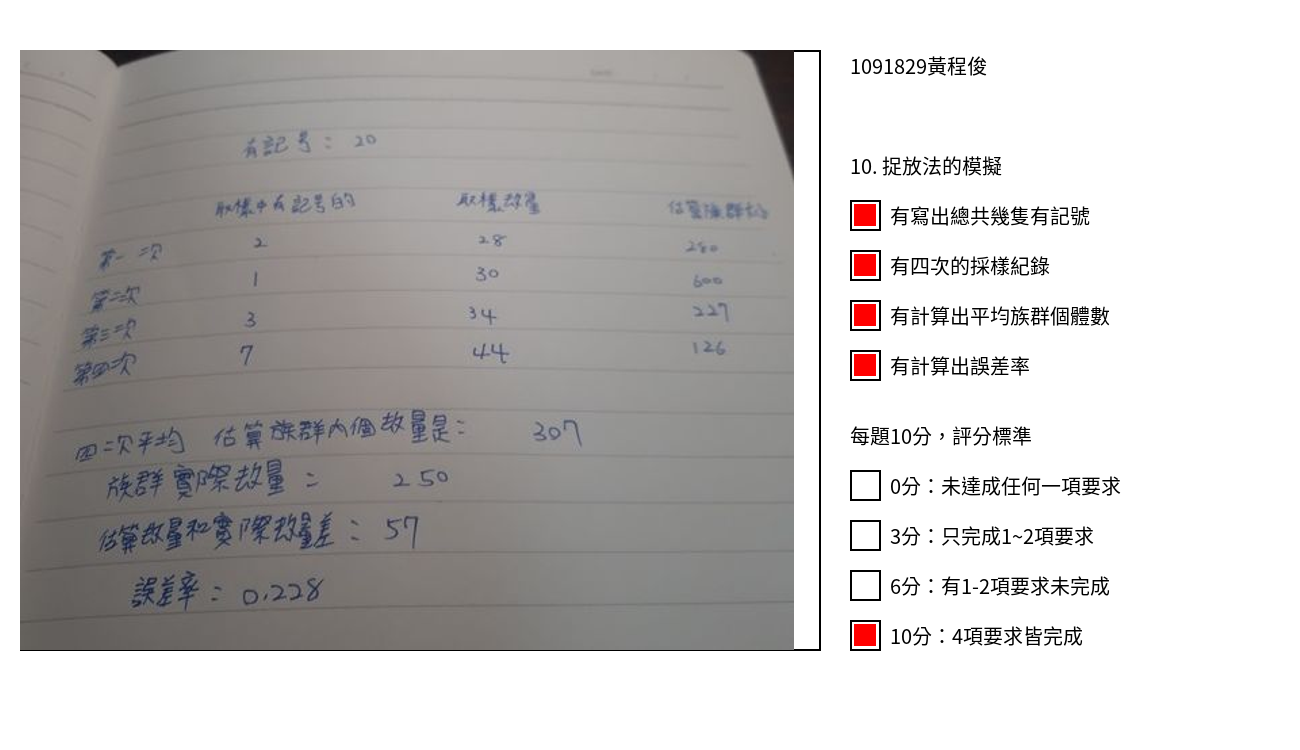 有記号：20
取樣中有記号的 取樣数量 估算族群大小
第一次 2 28 280
第二次 1 30 600
第三次 3 34 227
第四次 7 44 126
四次平均 估算族群内個数量是： 307
族群實際数量： 250
估算数量和實際数量差：57
誤差率：0.228
1091829黃程俊
10. 捉放法的模擬
有寫出總共幾隻有記號
有四次的採樣紀錄
有計算出平均族群個體數
有計算出誤差率
每題10分，評分標準
0分：未達成任何一項要求
3分：只完成1~2項要求
6分：有1-2項要求未完成
10分：4項要求皆完成